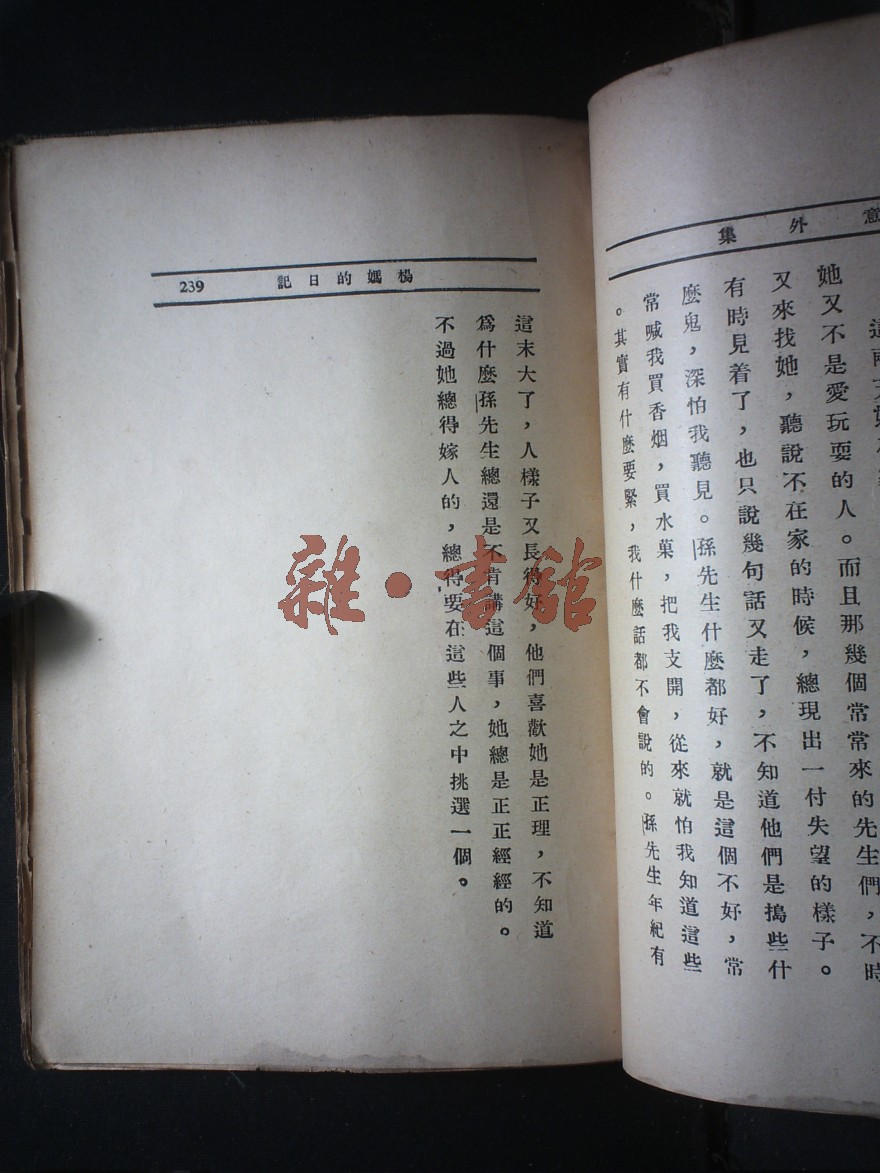 意外集
這兩天
她又不是愛玩耍的人。而且那幾個常常來的先生們，不時
又來找她，聽說不在家的時候，總現出一付失望的樣子。
有時見着了，也只說幾句話又走了，不知道他們是搗些什
麼鬼，深怕我聽見。孫先生什麼都好，就是這個不好，常
常喊我買香烟，買水菓，把我支開，從來就怕我知道這些
。其實有什麼要緊，我什麼話都不會說的。孫先生年紀有
楊媽的日記
239
這末大了，人樣子又長得好，他們喜歡她是正理，不知道
爲什麼孫先生總還是不肯講這個事，她總是正正經經的。
不過她總得嫁人的，總得要在這些人之中挑選一個。
雜·書館